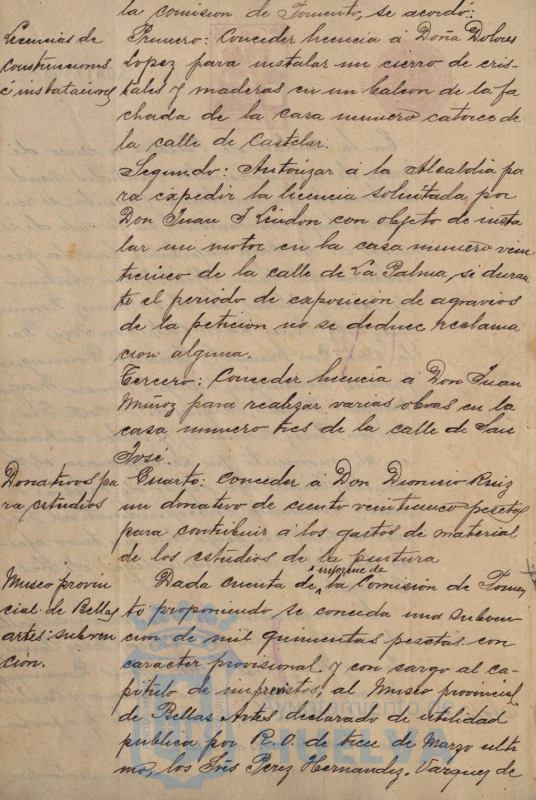 la comision de Fomento, se acordó:
Licencias de
construcciones
é instalaciones
Primero: Conceder licencia á Doña Dolores
Lopez para instalar un cierro de cris-
tales y maderas en un balcon de la fa
chada de la casa numero catorce de
la calle de Castelar.
Segundo: Autorizar á la Alcaldia pa
ra expedir la licencia solicitada por
Don Juan S. con objeto de insta
lar un motor en la casa numero vein
ticinco de la calle de La Palma, si duran
te el periodo de exposicion de agravios
de la peticion no se deduce reclama
cion alguna.
Tercero: Conceder licencia á Don Juan
Muñoz para realizar varias obras en la
casa numero tres de la calle de San
José
Donativos pa
ra estudios
Cuarto: Conceder á Don Dionisio Ruiz
un donativo de ciento veinticinco pesetas
para contribuir á los gastos de material
de los estudios de la pintura
Museo provin
cial de Bellas
artes: subven
ción.
Dada cuenta de informe de la Comisión de Fomen
to proponiendo se conceda una subven-
cion de mil quinientas pesetas con
caracter provisional y con cargo al ca-
pitulo de imprevistos, al Museo provincial
de Bellas Artes declarado de utilidad
pública por R.O. de trece de Marzo ulti
mo, los Sres Perez Hernandez, Vazquez de
Ayuntamiento de
HUELVA